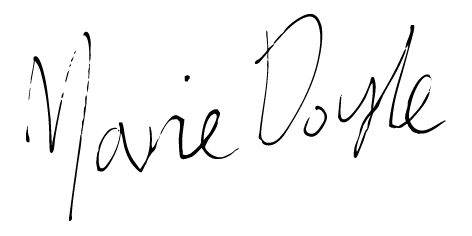 Marie Doyle